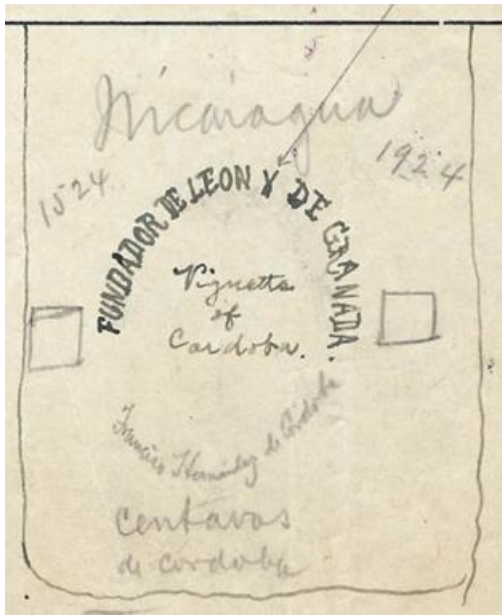 Nicaragua
1524
1924
FUNDADOR DE LEON Y DE GRANADA.
Vignette
of
Cordoba.
Francisco Hernández de Córdoba
centavos
de cordoba